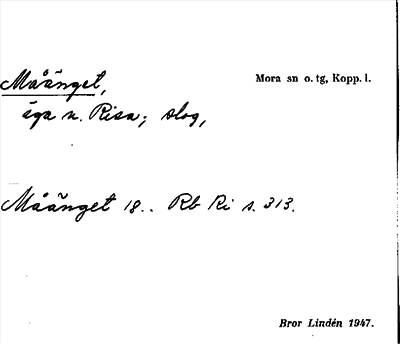 Måänget,
Mora sn o. tg, Kopp. l.
äga n. Risa; slog,
Måänget 18.. Rb Ri s. 313.
Bror Lindén 1947.